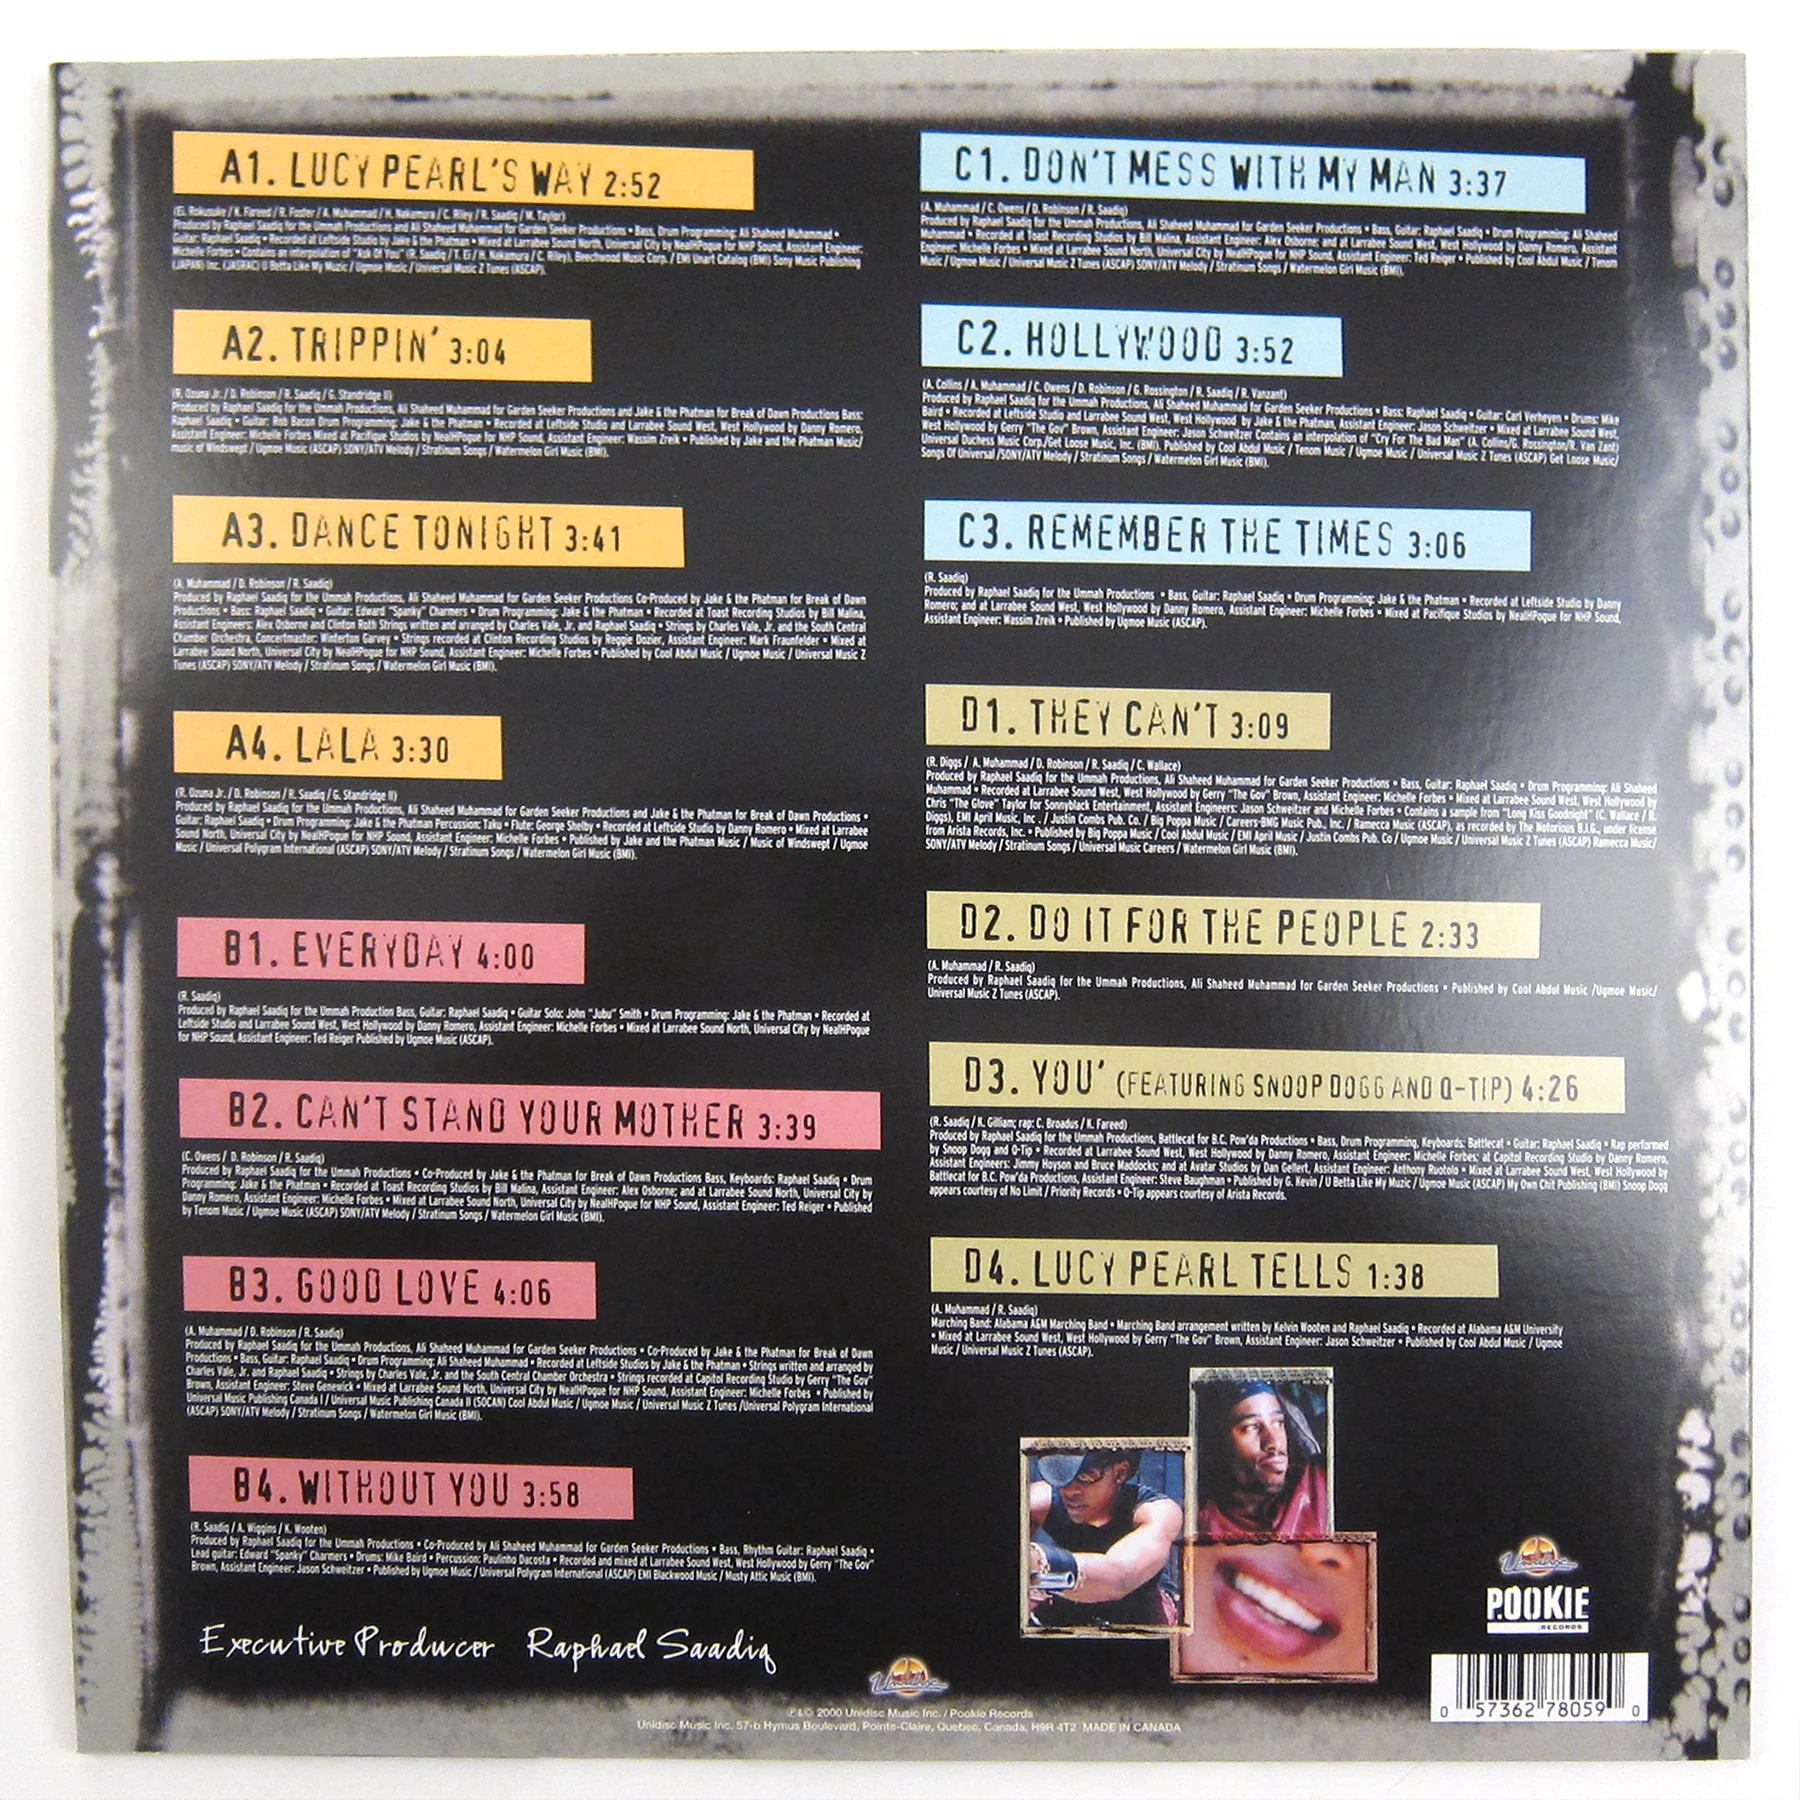 A1. LUCY PEARL'S WAY 2:52
(Ei. Rokusuke / K. Fareed / R. Foster / A. Muhammad / H. Nakamura / C. Riley / R. Saadiq / M. Taylor)
Produced by Raphael Saadiq for the Ummah Productions and Ali Shaheed Muhammad for Garden Seeker Productions • Bass, Drum Programming: Ali Shaheed Muhammad •
Guitar: Raphael Saadiq • Recorded at Leftside Studio by Jake & the Phatman • Mixed at Larrabee Sound North, Universal City by NealHPogue for NHP Sound, Assistant Engineer:
Michelle Forbes • Contains an interpolation of "Ask Of You" (R. Saadiq / T. Ei / H. Nakamura / C. Riley), Beechwood Music Corp. / EMI Unart Catalog (BMI) Sony Music Publishing
(JAPAN) Inc. (JASRAC) U Betta Like My Muzic / Ugmoe Music / Universal Music Z Tunes (ASCAP).
A2. TRIPPIN' 3:04
(R. Ozuna Jr. / D. Robinson / R. Saadiq / G. Standridge II)
Produced by Raphael Saadiq for the Ummah Productions, Ali Shaheed Muhammad for Garden Seeker Productions and Jake & the Phatman for Break of Dawn Productions Bass:
Raphael Saadiq • Guitar: Rob Bacon Drum Programming: Jake & the Phatman • Recorded at Leftside Studio and Larrabee Sound West, West Hollywood by Danny Romero,
Assistant Engineer: Michelle Forbes Mixed at Pacifique Studios by NealHPogue for NHP Sound, Assistant Engineer: Wassim Zreik • Published by Jake and the Phatman Music/
music of Windswept / Ugmoe Music (ASCAP) SONY/ATV Melody / Stratinum Songs / Watermelon Girl Music (BMI).
A3. DANCE TONIGHT 3:41
(A. Muhammad / D. Robinson / R. Saadiq)
Produced by Raphael Saadiq for the Ummah Productions, Ali Shaheed Muhammad for Garden Seeker Productions Co-Produced by Jake & the Phatman for Break of Dawn
Productions • Bass: Raphael Saadiq • Guitar: Edward "Spanky" Charmers • Drum Programming: Jake & the Phatman • Recorded at Toast Recording Studios by Bill Malina,
Assistant Engineers: Alex Osborne and Clinton Roth Strings written and arranged by Charles Vale, Jr. and Raphael Saadiq • Strings by Charles Vale, Jr. and the South Central
Chamber Orchestra, Concertmaster: Winterton Garvey • Strings recorded at Clinton Recording Studios by Reggie Dozier, Assistant Engineer: Mark Fraunfelder • Mixed at
Larrabee Sound North, Universal City by NealHPogue for NHP Sound, Assistant Engineer: Michelle Forbes • Published by Cool Abdul Music / Ugmoe Music / Universal Music Z
Tunes (ASCAP) SONY/ATV Melody / Stratinum Songs / Watermelon Girl Music (BMI).
A4. LALA 3:30
(R. Ozuna Jr. / D. Robinson / R. Saadiq / G. Standridge II)
Produced by Raphael Saadiq for the Ummah Productions, Ali Shaheed Muhammad for Garden Seeker Productions and Jake & the Phatman for Break of Dawn Productions •
Guitar: Raphael Saadiq • Drum Programming: Jake & the Phatman Percussion: Taku • Flute: George Shelby • Recorded at Leftside Studio by Danny Romero • Mixed at Larrabee
Sound North, Universal City by NealHPogue for NHP Sound, Assistant Engineer: Michelle Forbes • Published by Jake and the Phatman Music / Music of Windswept / Ugmoe
Music / Universal Polygram International (ASCAP) SONY/ATV Melody / Stratinum Songs / Watermelon Girl Music (BMI).
B1. EVERYDAY 4:00
(R. Saadiq)
Produced by Raphael Saadiq for the Ummah Production Bass, Guitar: Raphael Saadiq • Guitar Solo: John "Jubu" Smith • Drum Programming: Jake & the Phatman • Recorded at
Leftside Studio and Larrabee Sound West, West Hollywood by Danny Romero, Assistant Engineer: Michelle Forbes • Mixed at Larrabee Sound North, Universal City by NealHPogue
for NHP Sound, Assistant Engineer: Ted Reiger Published by Ugmoe Music (ASCAP).
B2. CAN'T STAND YOUR MOTHER 3:39
(C. Owens / D. Robinson / R. Saadiq)
Produced by Raphael Saadiq for the Ummah Productions • Co-Produced by Jake & the Phatman for Break of Dawn Productions Bass, Keyboards: Raphael Saadiq • Drum
Programming: Jake & the Phatman • Recorded at Toast Recording Studios by Bill Malina, Assistant Engineer: Alex Osborne; and at Larrabee Sound North, Universal City by
Danny Romero, Assistant Engineer: Michelle Forbes • Mixed at Larrabee Sound North, Universal City by NealHPogue for NHP Sound, Assistant Engineer: Ted Reiger • Published
by Tenom Music / Ugmoe Music (ASCAP) SONY/ATV Melody / Stratinum Songs / Watermelon Girl Music (BMI).
B3. GOOD LOVE 4:06
(A. Muhammad / D. Robinson / R. Saadiq)
Produced by Raphael Saadiq for the Ummah Productions, Ali Shaheed Muhammad for Garden Seeker Productions • Co-Produced by Jake & the Phatman for Break of Dawn
Productions • Bass, Guitar: Raphael Saadiq • Drum Programming: Ali Shaheed Muhammad • Recorded at Leftside Studios by Jake & the Phatman • Strings written and arranged by
Charles Vale, Jr. and Raphael Saadiq • Strings by Charles Vale, Jr. and the South Central Chamber Orchestra • Strings recorded at Capitol Recording Studio by Gerry "The Gov"
Brown, Assistant Engineer: Steve Genewick • Mixed at Larrabee Sound North, Universal City by NealHPogue for NHP Sound, Assistant Engineer: Michelle Forbes • Published by
Universal Music Publishing Canada I / Universal Music Publishing Canada II (SOCAN) Cool Abdul Music / Ugmoe Music / Universal Music Z Tunes /Universal Polygram International
(ASCAP) SONY/ATV Melody / Stratinum Songs / Watermelon Girl Music (BMI).
B4. WITHOUT YOU 3:58
(R. Saadiq / A. Wiggins / K. Wooten)
Produced by Raphael Saadiq for the Ummah Productions • Co-Produced by Ali Shaheed Muhammad for Garden Seeker Productions • Bass, Rhythm Guitar: Raphael Saadiq •
Lead guitar: Edward "Spanky" Charmers • Drums: Mike Baird • Percussion: Paulinho Dacosta • Recorded and mixed at Larrabee Sound West, West Hollywood by Gerry "The Gov"
Brown, Assistant Engineer: Jason Schweitzer • Published by Ugmoe Music / Universal Polygram International (ASCAP) EMI Blackwood Music / Musty Attic Music (BMI).
Executive Producer Raphael Saadiq
C1. DON'T MESS WITH MY MAN 3:37
(A. Muhammad / C. Owens / D. Robinson / R. Saadiq)
Produced by Raphael Saadiq for the Ummah Productions, Ali Shaheed Muhammad for Garden Seeker Productions • Bass, Guitar: Raphael Saadiq • Drum Programming: Ali Shaheed
Muhammad • Recorded at Toast Recording Studios by Bill Malina, Assistant Engineer: Alex Osborne; and at Larrabee Sound West, West Hollywood by Danny Romero, Assistant
Engineer: Michelle Forbes • Mixed at Larrabee Sound North, Universal City by NealHPogue for NHP Sound, Assistant Engineer: Ted Reiger • Published by Cool Abdul Music / Tenom
Music / Ugmoe Music / Universal Music Z Tunes (ASCAP) SONY/ATV Melody / Stratinum Songs / Watermelon Girl Music (BMI).
C2. HOLLYWOOD 3:52
(A. Collins / A. Muhammad / C. Owens / D. Robinson / G. Rossington / R. Saadiq / R. Vanzant)
Produced by Raphael Saadiq for the Ummah Productions, Ali Shaheed Muhammad for Garden Seeker Productions • Bass: Raphael Saadiq • Guitar: Carl Verheyen • Drums: Mike
Baird • Recorded at Leftside Studio and Larrabee Sound West, West Hollywood by Jake & the Phatman, Assistant Engineer: Jason Schweitzer • Mixed at Larrabee Sound West,
West Hollywood by Gerry "The Gov" Brown, Assistant Engineer: Jason Schweitzer Contains an interpolation of "Cry For The Bad Man" (A. Collins/G. Rossington/R. Van Zant)
Universal Duchess Music Corp./Get Loose Music, Inc. (BMI). Published by Cool Abdul Music / Tenom Music / Ugmoe Music / Universal Music Z Tunes (ASCAP) Get Loose Music/
Songs Of Universal /SONY/ATV Melody / Stratinum Songs / Watermelon Girl Music (BMI).
C3. REMEMBER THE TIMES 3:06
(R. Saadiq)
Produced by Raphael Saadiq for the Ummah Productions • Bass, Guitar: Raphael Saadiq • Drum Programming: Jake & the Phatman • Recorded at Leftside Studio by Danny
Romero; and at Larrabee Sound West, West Hollywood by Danny Romero, Assistant Engineer: Michelle Forbes • Mixed at Pacifique Studios by NealHPogue for NHP Sound,
Assistant Engineer: Wassim Zreik • Published by Ugmoe Music (ASCAP).
D1. THEY CAN'T 3:09
(R. Diggs / A. Muhammad / D. Robinson / R. Saadiq / C. Wallace)
Produced by Raphael Saadiq for the Ummah Productions, Ali Shaheed Muhammad for Garden Seeker Productions • Bass, Guitar: Raphael Saadiq • Drum Programming: Ali Shaheed
Muhammad • Recorded at Larrabee Sound West, West Hollywood by Gerry "The Gov" Brown, Assistant Engineer: Michelle Forbes • Mixed at Larrabee Sound West, West Hollywood by
Chris "The Glove" Taylor for Sonnyblack Entertainment, Assistant Engineers: Jason Schweitzer and Michelle Forbes • Contains a sample from "Long Kiss Goodnight" (C. Wallace / R.
Diggs), EMI April Music, Inc. / Justin Combs Pub. Co. / Big Poppa Music / Careers-BMG Music Pub., Inc. / Ramecca Music (ASCAP), as recorded by The Notorious B.I.G., under license
from Arista Records, Inc. • Published by Big Poppa Music / Cool Abdul Music / EMI April Music / Justin Combs Pub. Co / Ugmoe Music / Universal Music Z Tunes (ASCAP) Ramecca Music/
SONY/ATV Melody / Stratinum Songs / Universal Music Careers / Watermelon Girl Music (BMI).
D2. DO IT FOR THE PEOPLE 2:33
(A. Muhammad / R. Saadiq)
Produced by Raphael Saadiq for the Ummah Productions, Ali Shaheed Muhammad for Garden Seeker Productions • Published by Cool Abdul Music /Ugmoe Music/
Universal Music Z Tunes (ASCAP).
D3. YOU' (FEATURING SNOOP DOGG AND Q-TIP) 4:26
(R. Saadiq / K. Gilliam; rap: C. Broadus / K. Fareed)
Produced by Raphael Saadiq for the Ummah Productions, Battlecat for B.C. Pow'da Productions • Bass, Drum Programming, Keyboards: Battlecat • Guitar: Raphael Saadiq • Rap performed
by Snoop Dogg and Q-Tip • Recorded at Larrabee Sound West, West Hollywood by Danny Romero, Assistant Engineer: Michelle Forbes; at Capitol Recording Studio by Danny Romero,
Assistant Engineers: Jimmy Hoyson and Bruce Maddocks; and at Avatar Studios by Dan Gellert, Assistant Engineer: Anthony Ruotolo • Mixed at Larrabee Sound West, West Hollywood by
Battlecat for B.C. Pow'da Productions, Assistant Engineer: Steve Baughman • Published by G. Kevin / U Betta Like My Muzic / Ugmoe Music (ASCAP) My Own Chit Publishing (BMI) Snoop Dogg
appears courtesy of No Limit / Priority Records • Q-Tip appears courtesy of Arista Records.
D4. LUCY PEARL TELLS 1:38
(A. Muhammad / R. Saadiq)
Marching Band: Alabama A&M Marching Band • Marching Band arrangement written by Kelvin Wooten and Raphael Saadiq • Recorded at Alabama A&M University
• Mixed at Larrabee Sound West, West Hollywood by Gerry "The Gov" Brown, Assistant Engineer: Jason Schweitzer • Published by Cool Abdul Music / Ugmoe
Music / Universal Music Z Tunes (ASCAP).
Unidisc
POOKIE
RECORDS
0 57362 78059 0
Unidisc
℗&© 2000 Unidisc Music Inc. / Pookie Records
Unidisc Music Inc. 57-b Hymus Boulevard, Pointe-Claire, Quebec, Canada, H9R 4T2 MADE IN CANADA